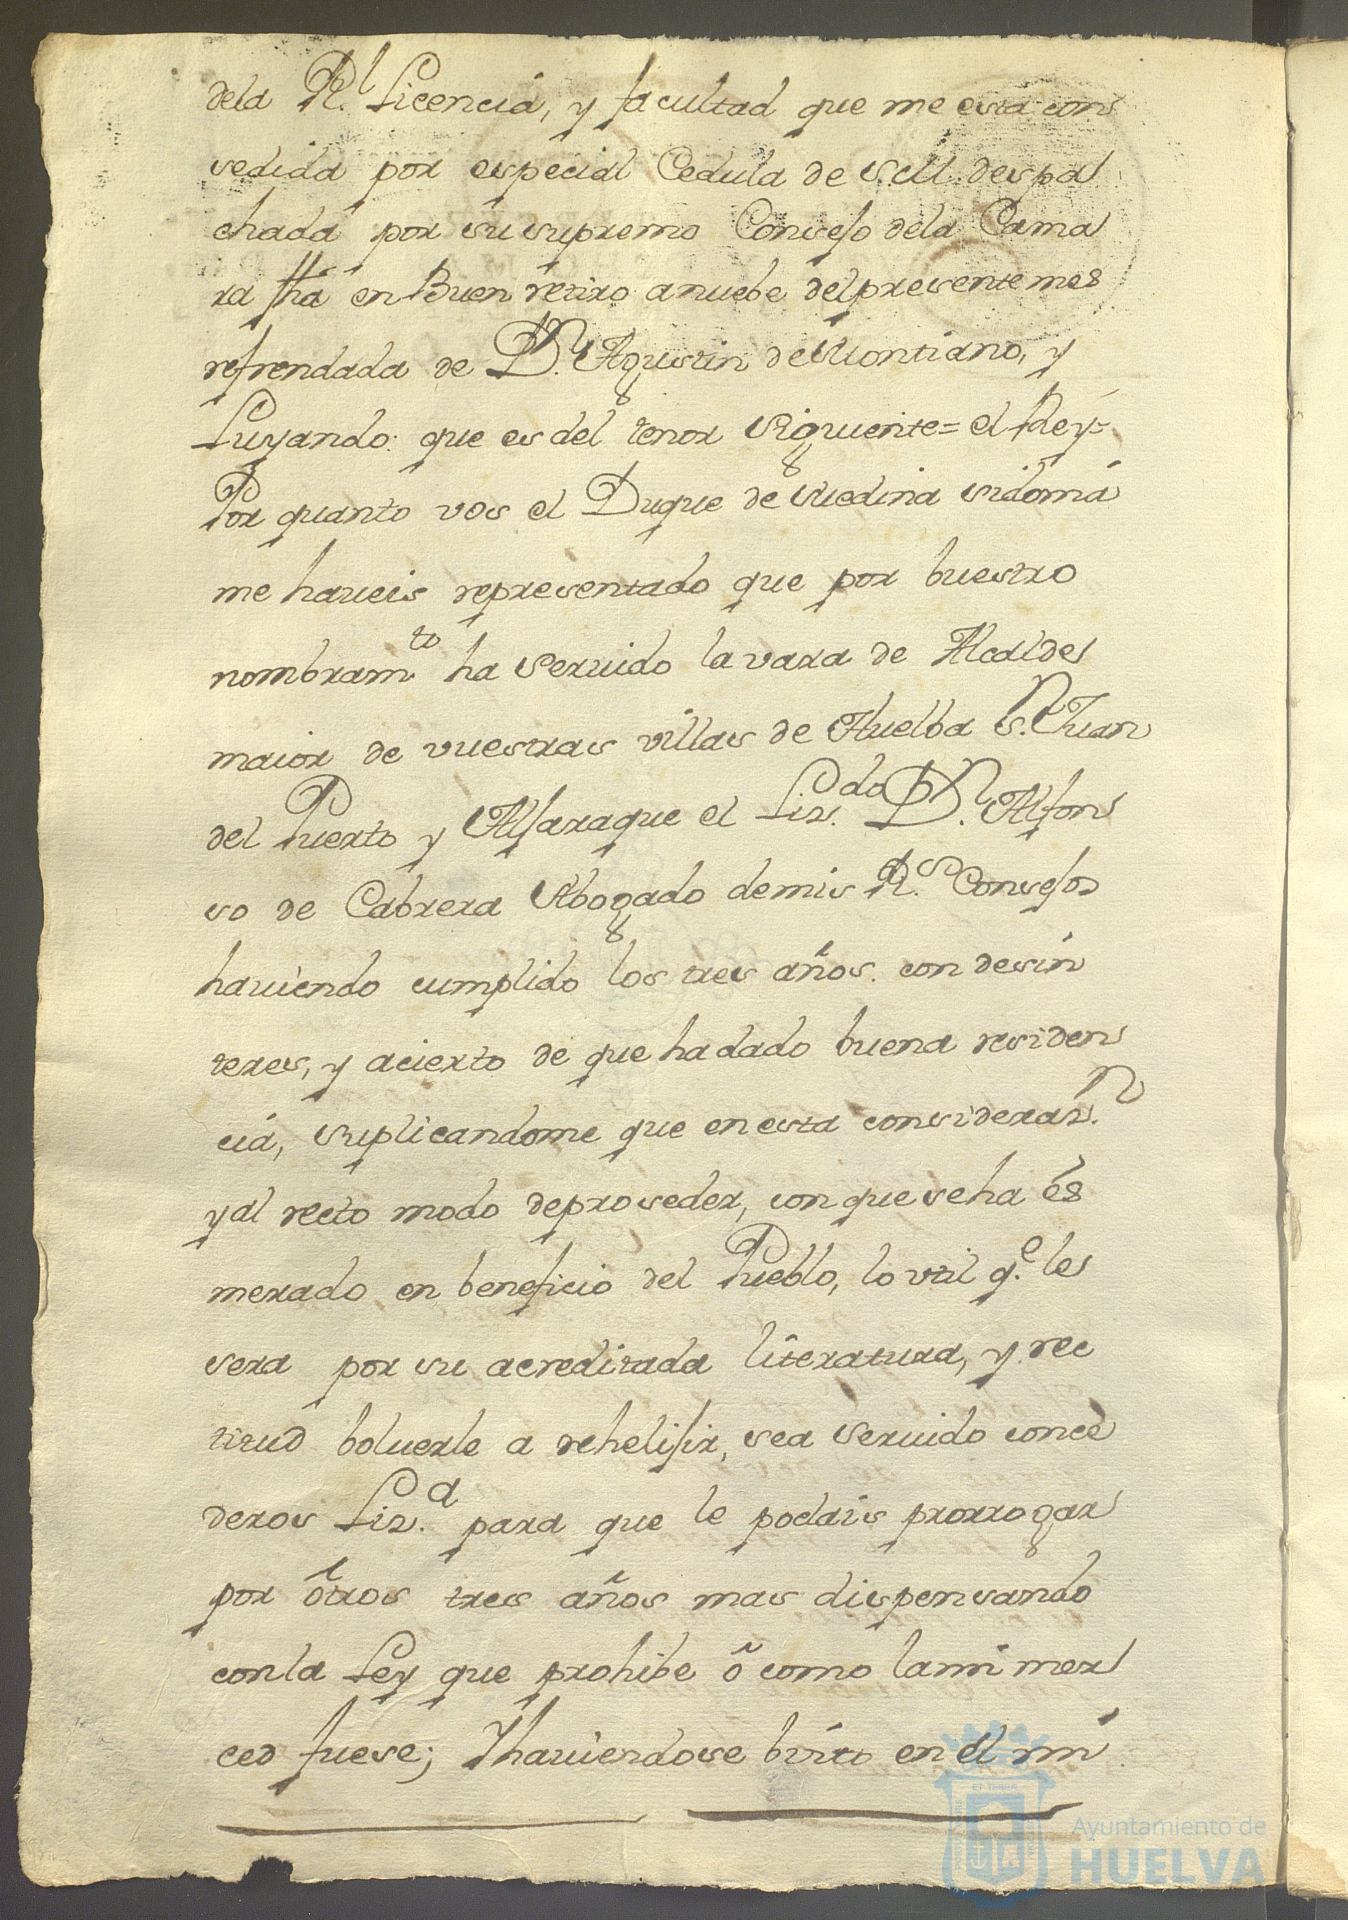 dela R.l Licencia, y facultad que me esta con
sedida por especial Cedula de S.M. despa
chada por su supremo Consejo dela Cama
ra fha en Buen retiro a nuebe del presente mes
refrendada de D.n Agustin de Montiano, y
Luyando: que es del tenor siguiente= el Rey=
Por quanto vos el Duque de Medina sidonia
me haveis representado que por buestro
nombram.to ha servido la vara de Alcalde
maior de vuestras villas de Huelba S.n Juan
del Puerto y Aljaraque el Liz.do D.n Alfon
so de Cabrera Abogado de mis R.s Consejos
haviendo cumplido los tres años. con desin
teres, y acierto de que ha dado buena residen
cia, suplicandome que en esta consideraz.n
y al recto modo de proseder, con que se ha es
merado en beneficio del Pueblo, lo util q.e les
sera por su acreditada literatura, y rec
titud bolverle a rehelijir, sea servido conce
deros Liz.a para que le podais prorrogar
por ótros tres años mas dispensando
con la Ley que prohibe ó como la mi mer
ced fuese; Y haviendose bisto en el mi
Ayuntamiento de
HUELVA